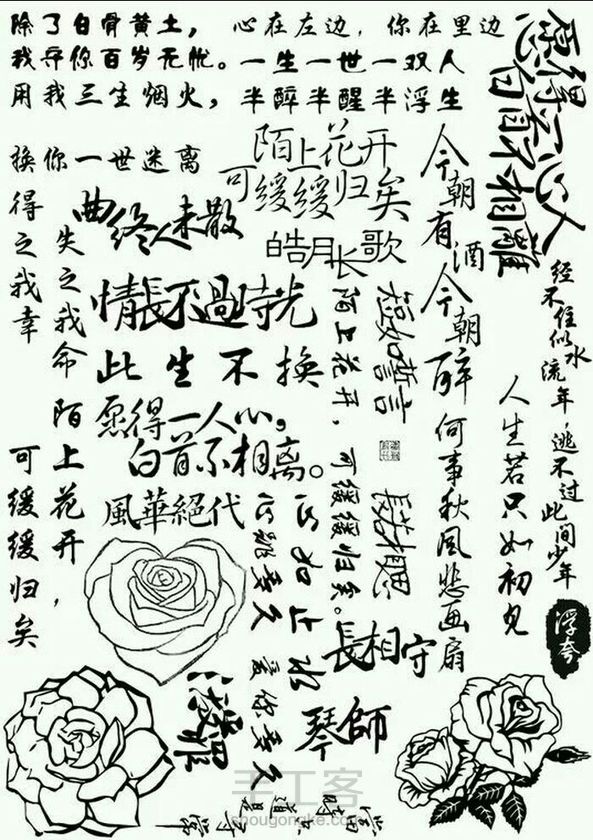 除了白骨黄土，
我守你百岁无忧。
用我三生烟火，
换你一世迷离
心在左边，你在里边
一生一世一双人
半醉半醒半浮生
愿得一心人
白首不相離
陌上花开
可缓缓归矣
皓月长歌
今朝有酒
今朝醉
得之我幸
失之我命
曲终人未散
情長不過時光
此生不换
愿得一人心。
白首不相离。
風華絕代
陌上花开，
可缓缓归矣
陌上花开，可缓缓归矣。
短如誓言
長若相思
何事秋风悲画扇
人生若只如初见
经不住似水流年，逃不过此间少年
浮夸
心如止水
心跳幸久
爱你幸久
長相守
琴師
手工客
shougongke.com